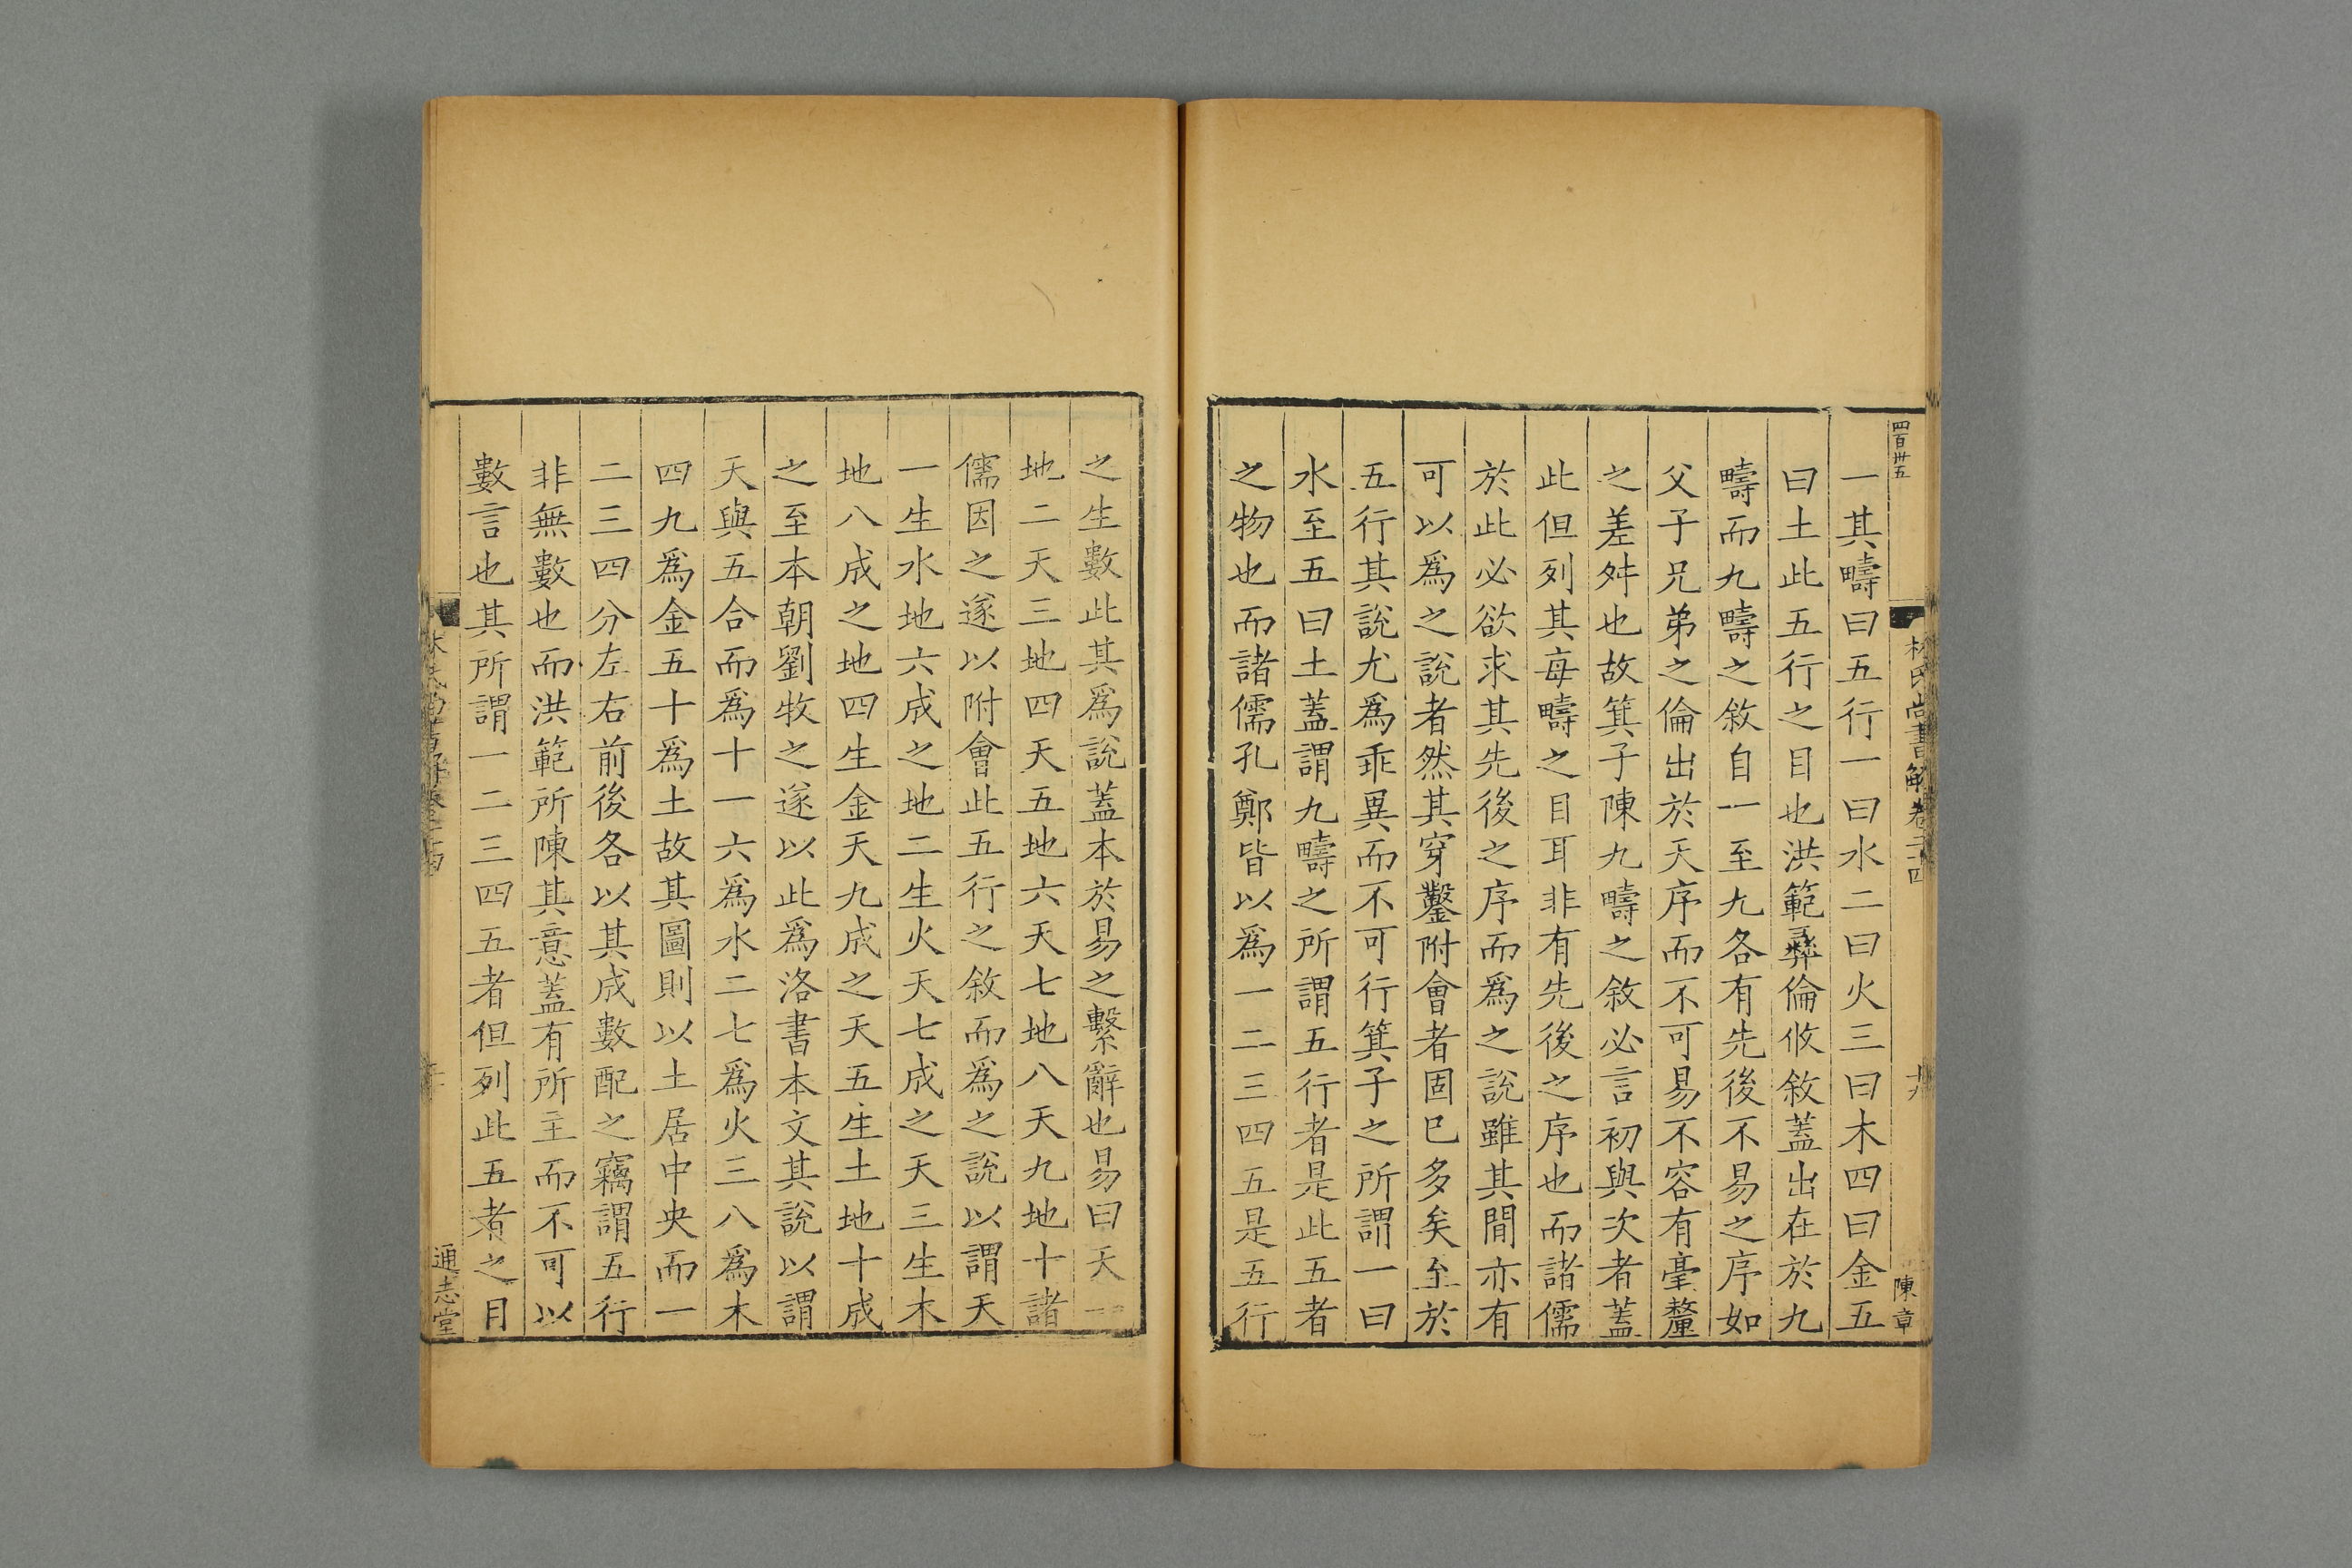 四百卅五
林氏尚書解卷二十四
十九
陳章
一其疇曰五行一曰水二曰火三曰木四曰金五
曰土此五行之目也洪範彝倫攸敘蓋出在於九
疇而九疇之敘自一至九各有先後不易之序如
父子兄弟之倫出於天序而不可易不容有毫釐
之差舛也故箕子陳九疇之敘必言初與次者蓋
此但列其每疇之目耳非有先後之序也而諸儒
於此必欲求其先後之序而爲之說雖其閒亦有
可以爲之說者然其穿鑿附會者固已多矣至於
五行其說尤爲乖異而不可行箕子之所謂一曰
水至五曰土蓋謂九疇之所謂五行者是此五者
之物也而諸儒孔鄭皆以爲一二三四五是五行
之生數此其爲說蓋本於易之繫辭也易曰天一
地二天三地四天五地六天七地八天九地十諸
儒因之遂以附會此五行之敘而爲之說以謂天
一生水地六成之地二生火天七成之天三生木
地八成之地四生金天九成之天五生土地十成
之至本朝劉牧之遂以此爲洛書本文其說以謂
天與五合而爲十一六爲水二七爲火三八爲木
四九爲金五十爲土故其圖則以土居中央而一
二三四分左右前後各以其成數配之竊謂五行
非無數也而洪範所陳其意蓋有所主而不可以
數言也其所謂一二三四五者但列此五者之目
通志堂